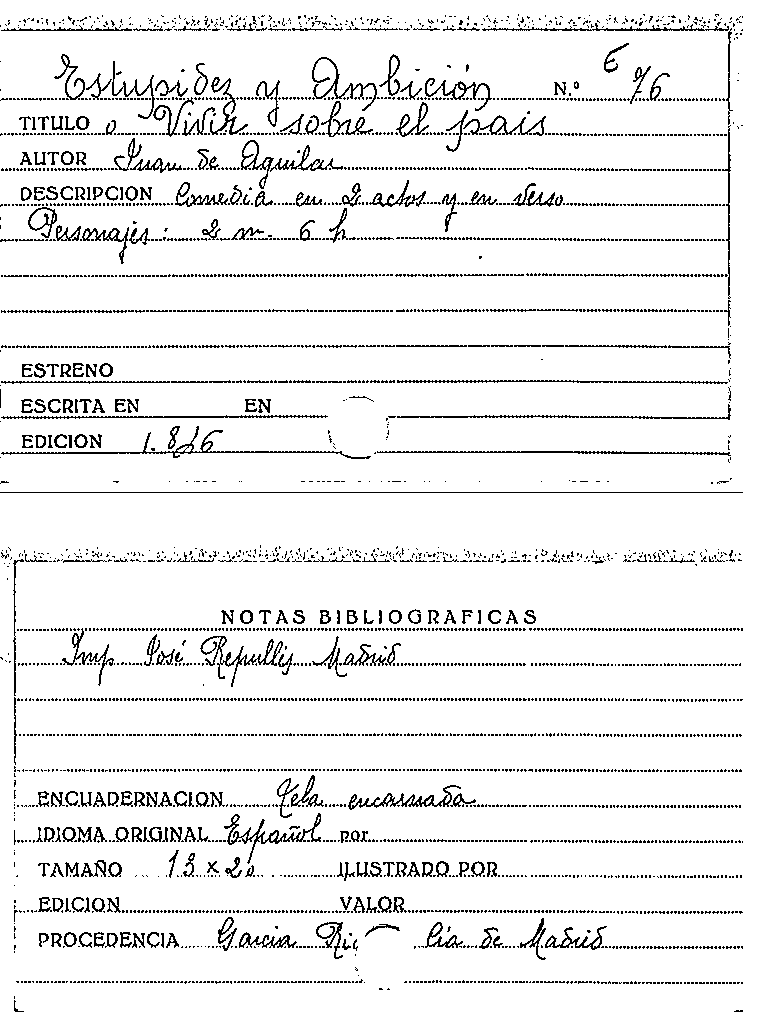 Estupidez y Ambición N.º 6 76
TITULO o Vivir sobre el pais
AUTOR Juan de Aguilar
DESCRIPCION Comedia en 2 actos y en verso
Personajes: 2 m. 6 h
ESTRENO
ESCRITA EN EN
EDICION
NOTAS BIBLIOGRAFICAS
Imp José Repullés Madrid
ENCUADERNACION Tela encarnada
IDIOMA ORIGINAL Español por
TAMAÑO 13 x 20 ILUSTRADO POR
EDICION VALOR
PROCEDENCIA Garcia Ric Cía de Madrid